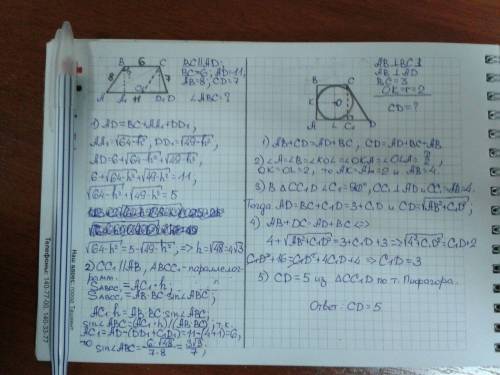 B 6 C
8 h 7
A A₁ 11 D₁ D
BC||AD
BC=6, AD=11,
AB=8, CD=7
∠ABC=?
1) AD=BC+AA₁+DD₁,
AA₁=√64-h², DD₁=√49-h²,
AD=6+√64-h²+√49-h²,
6+√64-h²+√49-h²=11,
√64-h²+√49-h²=5
√64-h²=5-√49-h², => h=√48=4√3
2) CC₁||AB, ABCC₁-параллелограмм.
S_ABCC₁=AC₁·h;
S_ABCC₁=AB·BC·sin∠ABC,
AC₁·h=AB·BC·sin∠ABC;
sin∠ABC=(AC₁·h)/(AB·BC), т.к.
AC₁=AD-(DD₁+C₁D₁)=11-(4+1)=6,
то
sin∠ABC=6·√48/7·8=3√3/7;
B C
K O
A L C₁ D
AB⊥BC
AB⊥AD
BC=3
OK=r=2
CD=?
1) AB+CD=AD+BC, CD=AD+BC-AB
2) ∠A=∠B=∠KOL=∠OKA=∠OLA=π/2,
OK=OL=2, то AK=AL=2 и AB=4.
3) В ΔCC₁D ∠C₁=90°, CC₁⊥AD и CC₁=AB=4.
Тогда AD=BC+C₁D=3+C₁D и CD=√AB²+C₁D²,
4) AB+DC=AD+BC <=>
4+√AB²+C₁D²=3+C₁D+3 => √4²+C₁D²=C₁D+2
C₁D²+16=C₁D²+4C₁D+4 => C₁D=3
5) CD=5 из ΔCC₁D по т. Пифагора.
Ответ: CD=5